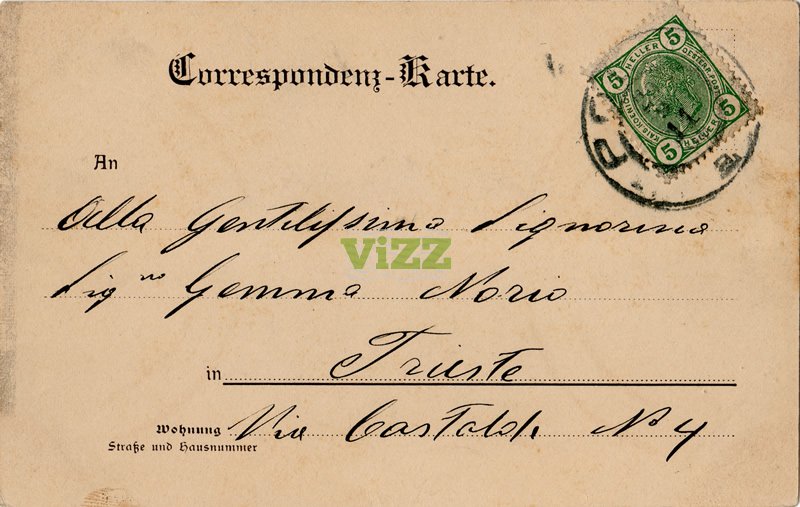 Correspondenz-Karte.
5 HELLER 5
5 HELLER 5
An
Alla Gentilissima Signorina
ViZZ
Sig.na Gemma Norio
in Trieste
Wohnung
Straße und Hausnummer
Via Castaldi No 4